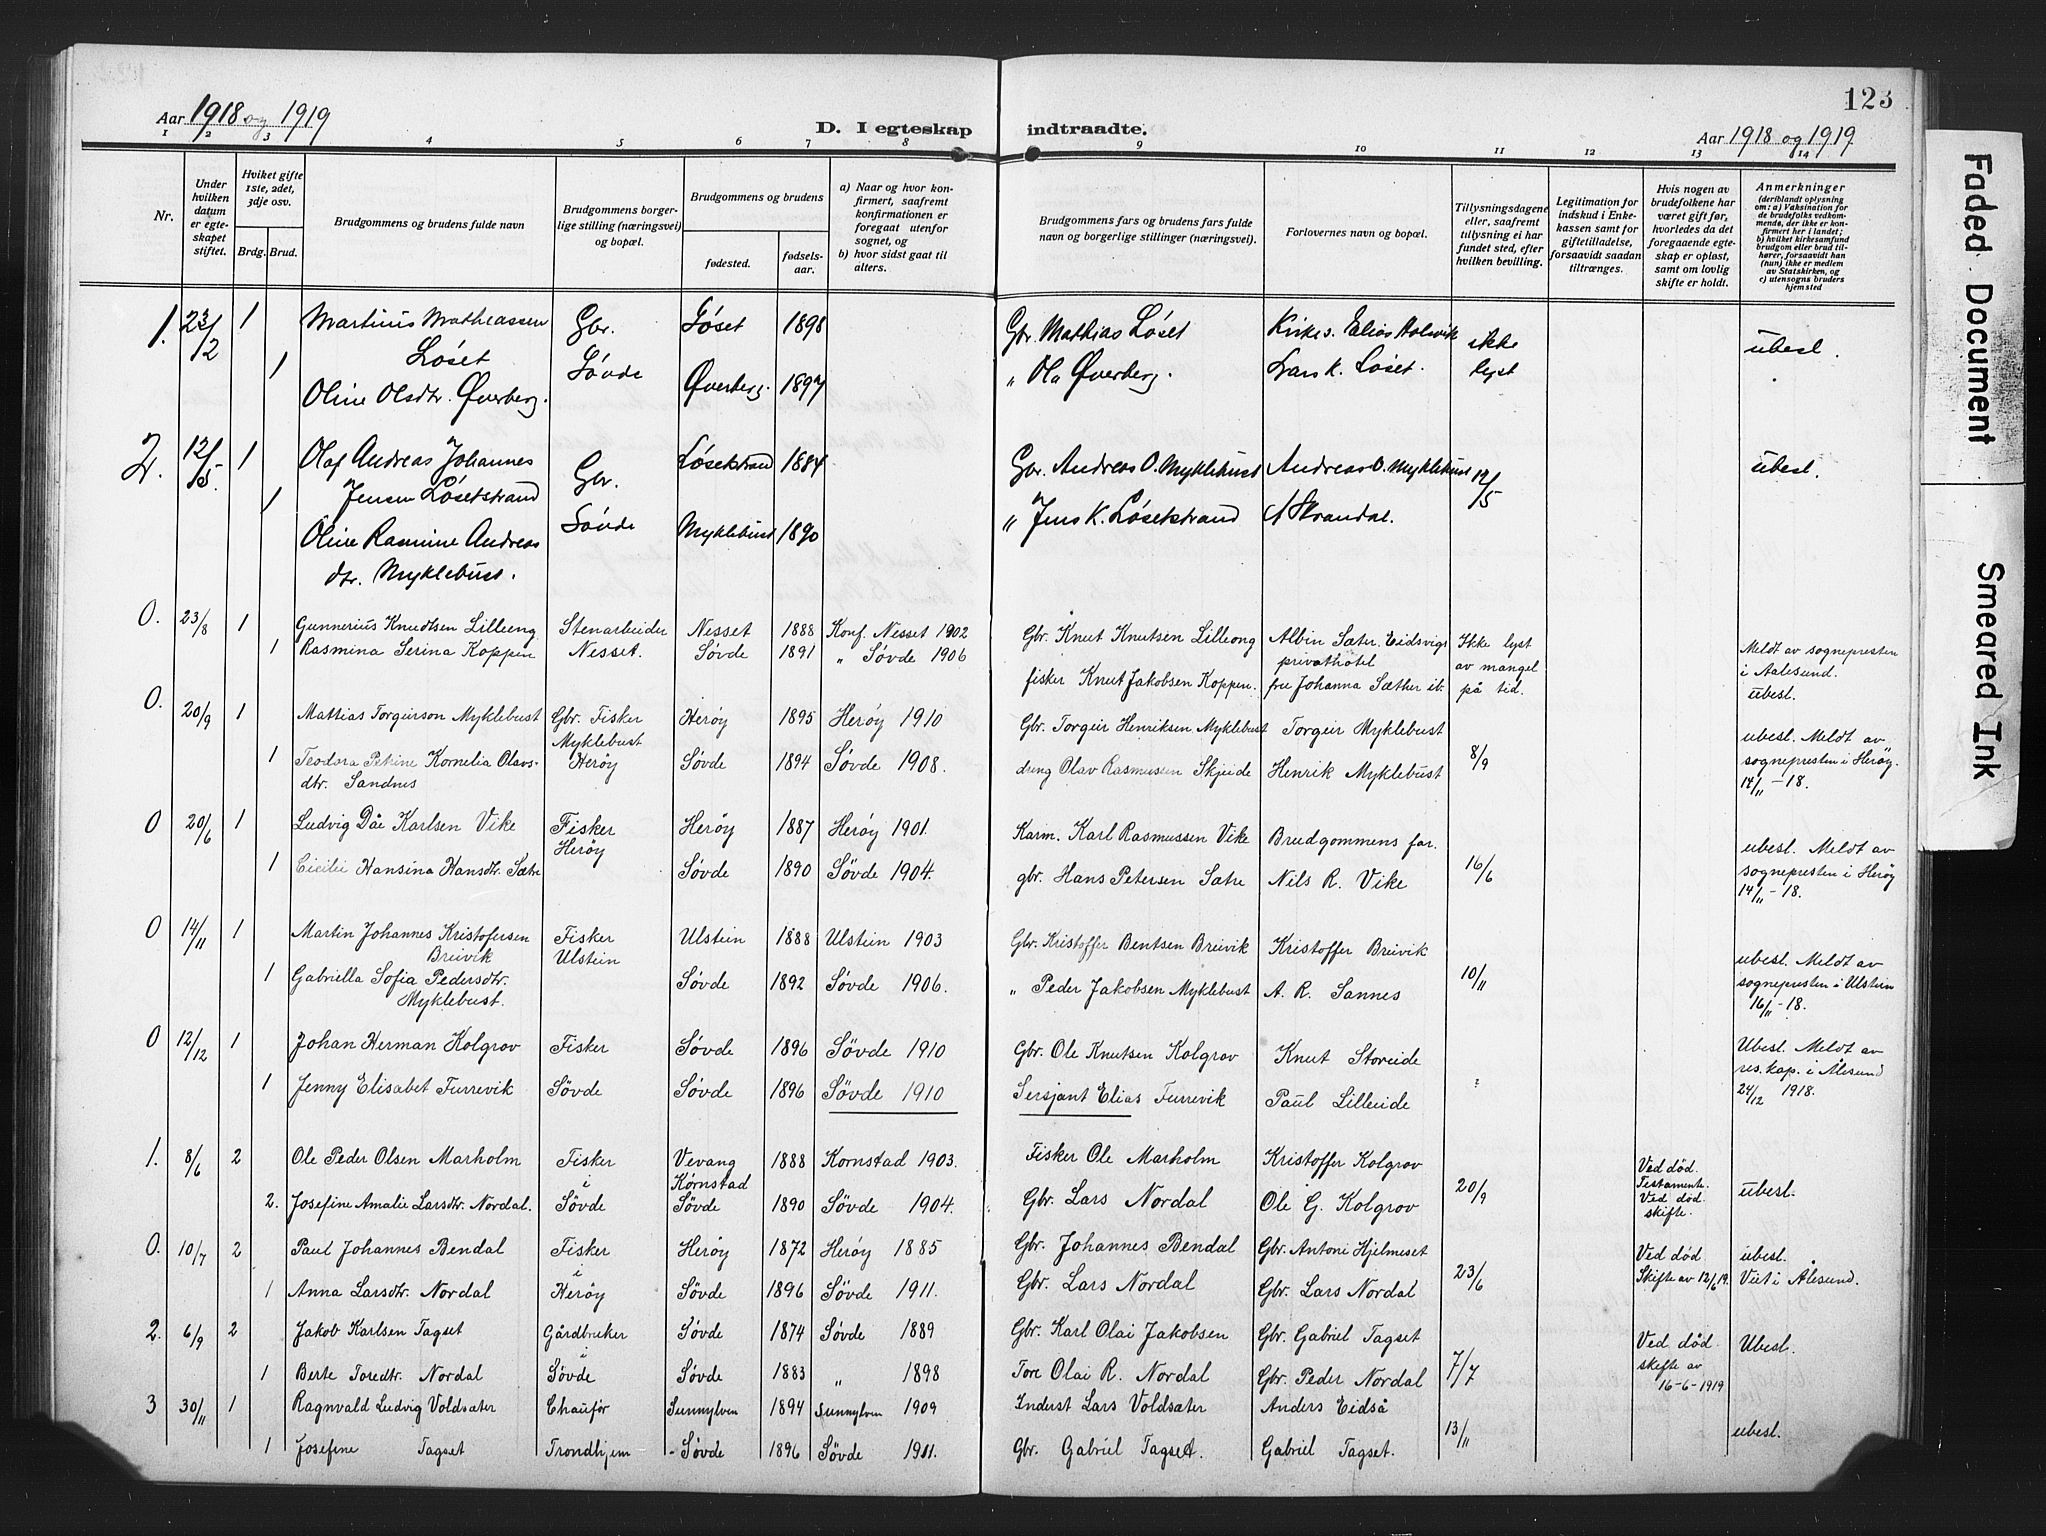 123
Aar 1918 og 1919
D. I egteskap indtraadte.
Aar 1918 og 1919
1 2 3 4 5 6 7 8 9 10 11 12 13 14
Nr.
Under hvilken datum er egteskapet stiftet.
Hviket gifte 1ste, 2det, 3dje osv.
Brdg. Brud.
Brudgommens og brudens fulde navn
Brudgommens borgerlige stilling (næringsvei) og bopæl.
Brudgommens og brudens
fødested.
fødselsaar.
a) Naar og hvor konfirmert, saafremt konfirmationen er foregaat utenfor sognet, og
b) hvor sidst gaat til alters.
Brudgommens fars og brudens fars fulde navn og borgerlige stillinger (næringsvei).
Forlovernes navn og bopæl.
Tillysningsdagene eller, saafremt tillysning ei har fundet sted, efter hvilken bevilling.
Legitimation for indskud i Enkekassen samt for giftetilladelse, forsaavidt saadan tiltrænges.
Hvis nogen av brudefolkene har været gift før, hvorledes da det foregaaende egteskap er opløst, samt om lovlig skifte er holdt.
Anmerkninger (deriblandt oplysning om: a) Vaksination for de brudefolks vedkommende, der ikke er konfirmert her i landet; b) hvilket kirkesamfund brudgom eller brud tilhører, forsaavidt han (hun) ikke er medlem av Statskirken, og c) utensogns bruders hjemsted
1. 23/2 1 Martinus Mathiassen Gbr. Løset 1898 Gbr. Mathias Løset Kirkes. Elias Aalsvik ikke ubesl.
Løset
1 Oline Olsdtr. Øverberg. Søvde Øverberg. 1897 " Ola Øverberg. Lars K. Løset. lyst
2. 12/5. 1 Olaf Andreas Johannes Gbr. Løsetstrand 1884 Gbr. Andreas O. Myklebust Andreas O. Myklebust 12/5 ubesl.
1 Jensen Løsetstrand Søvde " Jens K. Løsetstrand A Skrandal.
Oline Rasmine Andreas Myklebust 1890
dtr. Myklebust.
0. 23/8 1 Gunnerius Knudtsen Lilleeng Stenarbeider Nesset 1888 Konf. Nesset 1902 Gbr. Knut Knutsen Lilleong Albin Sæter. Eidsvigs Ikke lyst Meldt av sognepresten
1 Rasmina Serina Koppen Nesset. Søvde 1891 " Søvde 1906 fisker Knut Jakobsen Koppen. privathotel av mangel i Aalesund.
fru Johanna Sæther ib. på tid. ubesl.
0. 20/9 1 Mattias Torgeirson Myklebust Gbr. Fisker Herøy 1895 Herøy 1910 Gbr. Torgeir Henriksen Myklebust Torgeir Myklebust 8/9 ubesl. Meldt av
Myklebust sognepresten i Herøy.
1 Teodora Petrine Kornelia Olavs- Herøy Søvde 1894 Søvde 1908. dreng Olav Rasmussen Skjeide Henrik Myklebust 14/11 - 18.
dtr. Sandnes
0 20/6 1 Ludvig Dåe Karlsen Vike Fisker Herøy 1887 Herøy 1901. Karm. Karl Rasmussen Vike Brudgommens far. 16/6 ubesl. Meldt av
Herøy sognepresten i Herøy
1 Cicilie Hansina Hansdtr. Sætre Søvde 1890 Søvde 1904. gbr. Hans Petersen Sætre Nils R. Vike 14/11 - 18.
0 14/11 1 Martin Johannes Kristofersen Fisker Ulstein 1888 Ulstein 1903 Gbr. Kristoffer Bentsen Breivik Kristoffer Breivik 10/11 ubesl. Meldt av
Breivik Ulstein sognepresten i Ulstein
1 Gabriella Sofia Pedersdtr. Søvde 1892 Søvde 1906. " Peder Jakobsen Myklebust A. R. Sannes 16/11 - 18.
Myklebust.
0 12/12 1 Johan Herman Kolgrov Fisker Søvde 1896 Søvde 1910 Gbr. Ole Knutsen Kolgrov Knut Storeide ? Ubesl. Meldt av
res. kap. i Ålesund
1 Jenny Elisabet Furrevik Søvde Søvde 1896 Søvde 1910 Sersjant Elias Furrevik Paul Lilleide 24/12 1918.
1. 8/6 2 Ole Peder Olsen Marholm Fisker Vevang 1888 Kornstad 1903. Fisker Ole Marholm Kristoffer Kolgrov 20/9 Ved død.
i Kornstad Testamente.
2. Josefine Amalie Larsdtr. Nordal. Søvde Søvde 1890 Søvde 1904. Gbr. Lars Nordal Ole G. Kolgrov Ved død skifte. ubesl.
0. 10/7 2 Paul Johannes Bendal Fisker Herøy 1872 Herøy 1885 Gbr. Johannes Bendal Gbr. Antoni Hjelmeset 23/6 Ved død. ubesl.
i
1 Anna Larsdtr. Nordal Herøy Søvde 1896 Søvde 1911. Gbr. Lars Nordal Gbr. Lars Nordal Skifte av 12/6 19. Viet i Ålesund.
2. 6/9 2 Jakob Karlsen Tagset Gårdbruker Søvde 1874 Søvde 1889 Gbr. Karl Olai Jakobsen Gbr. Gabriel Tagset 7/7 Ved død Ubesl.
i
1 Berte Toredtr. Nordal Søvde Søvde 1883 " 1898 Tore Olai R. Nordal Gbr. Peder Nordal skifte av
16-6-1919
3 30/11 1 Ragnvald Ludvig Voldsæter Chaufør Sunnylven 1894 Sunnylven 1909 Inderst Lars Voldsæter Anders Eidså 13/11 ubesl.
1 Josefine Tagset Trondhjem Søvde 1896 Søvde 1911. Gbr. Gabriel Tagset. Gabriel Tagset.
Faded Document
Smeared Ink